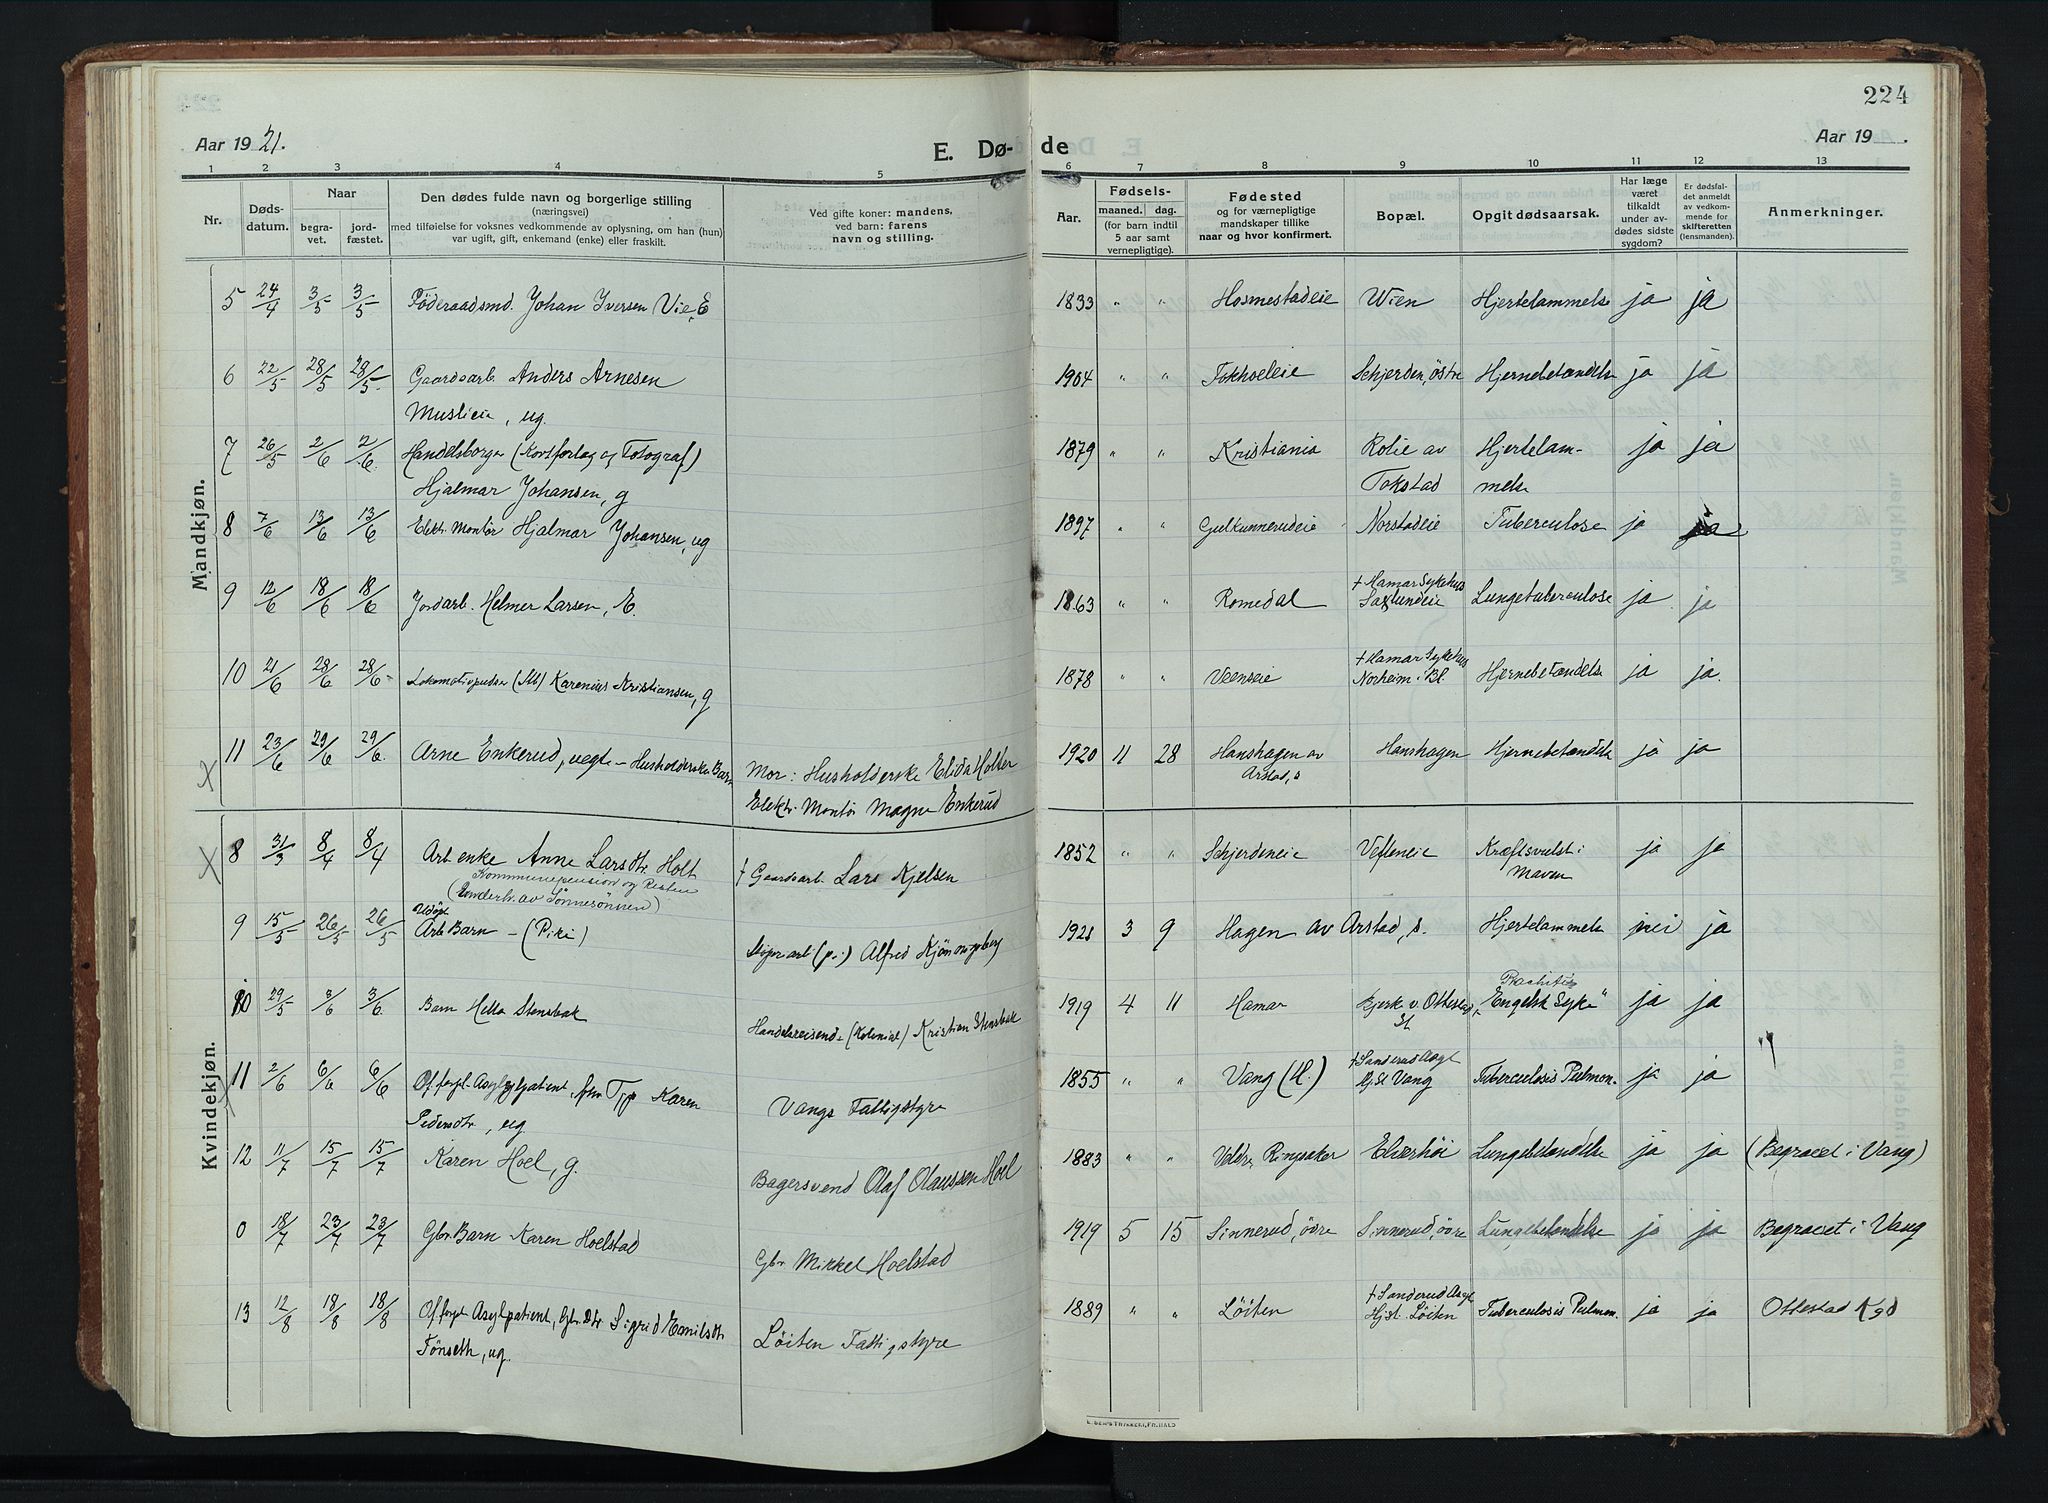 224
Aar 1921.
E. Dø- de
Aar 19 .
1 2 3 4 5 6 7 8 9 10 11 12 13
Nr.
Døds-
datum.
Naar
begra-
vet.
jord-
fæstet.
Den dødes fulde navn og borgerlige stilling
(næringsvei)
med tilføielse for voksnes vedkommende av oplysning, om han (hun)
var ugift, gift, enkemand (enke) eller fraskilt.
Ved gifte koner: mandens,
ved barn: farens
navn og stilling.
Aar.
Fødsels-
maaned. dag.
(for barn indtil
5 aar samt
vernepligtige).
Fødested
og for værnepligtige
mandskaper tillike
naar og hvor konfirmert.
Bopæl.
Opgit dødsaarsak.
Har læge
været
tilkaldt
under av-
dødes sidste
sygdom?
Er dødsfal-
det anmeldt
av vedkom-
mende for
skifteretten
(lensmanden).
Anmerkninger.
Mandkjøn.
5 24/4 3/5 3/5 Föderaadsmd. Johan Iversen Vie, E 1833 " " Hosmestadeie Wien Hjertelammelse ja ja
6 22/5 28/5 28/5 Gaardsarb. Anders Arnesen 1904 " " Tokhseleie Schjerden, östre Hjernebetændelse ja ja
Muslieie, ug.
7 26/5 2/6 2/6 Handelsborger (Kortforlag og Fotograf) 1879 " " Kristiania Rolie av Hjertelam- ja ja
Hjalmar Johansen, g Tokstad melse
8 7/6 13/6 13/6 Elektr. Montør Hjalmar Johansen, ug 1897 " " Gulkunnerudeie Norstadeie Tuberculose ja ja
9 12/6 18/6 18/6 Jordarb. Helmer Larsen, E. 1863 " " Romedal † Hamar Sykehus Saxlundeie Lungetuberculose ja ja
10 21/6 28/6 28/6 Lokomotivpudser (Stb) Karenius Kristiansen, g 1878 " " Veenseie † Hamar Sykehus Norheim i Bl. Hjernebetændelse ja ja.
11 23/6 29/6 29/6 Arne Enkerud, uegte - Husholderske Barn Mor: Husholderske Elida Holter 1920 11 28 Hanshagen av Hanshagen Hjernebetændelse ja ja
X Elektr. Montör Magne Enkerud Arstad, s
Kvindekjøn.
X 8 31/3 8/4 8/4 Arb enke Anne Larsdtr Holt † Gaardsarb. Lars Kjelsen 1852 " " Schjerdeneie Vefleneie Kræftsvulst i ja ja
Kommunepension og Resten Maven
(Underh. av Sönnesönnen)
9 15/5 26/5 26/5 Udöpt Arb Barn - (Pike) Skiprarb (p.) Alfred Kjönnigsberg 1921 3 9 Hagen av Arstad, s. Hjertelammelse nei ja
10 29/5 3/6 3/6 Barn Hella Stensbak Handelsreisende (Kolonial) Kristian Stensbak 1919 4 11 Hamar Bjerke v. Ottestad St Rachitis "Engelsk Syke" ja ja
11 2/6 6/6 6/6 Off. forpl. Asylpatient, Karen Vangs Fattigstyre 1855 " " Vang (H.) † Sanderud Asyl Hj.st Vang Tuberculosis Pulmon. ja ja
Pedersdtr, ug.
12 11/7 15/7 15/7 Karen Hoel, g. Bagersvend Olaf Olaussen Hoel 1883 " " Veldre, Ringsaker Elverhöi Lungebetændelse ja ja (Begravet i Vang)
0 18/7 23/7 23/7 Gbr. Barn Karen Hoelstad Gbr. Mikkel Hoelstad 1919 5 15 Sinnerud, övre Sinnerud, övre Lungebetændelse ja ja Begravet i Vang
13 12/8 18/8 18/8 Off forpl. Asylpatient, Gbr. Dtr. Sigrid Emilsdtr Löiten Fattigstyre 1889 " " Löiten † Sanderud Asyl Hjst. Löiten Tuberculosis Pulmon. ja ja Ottestad Kgd
Fönseth, ug.